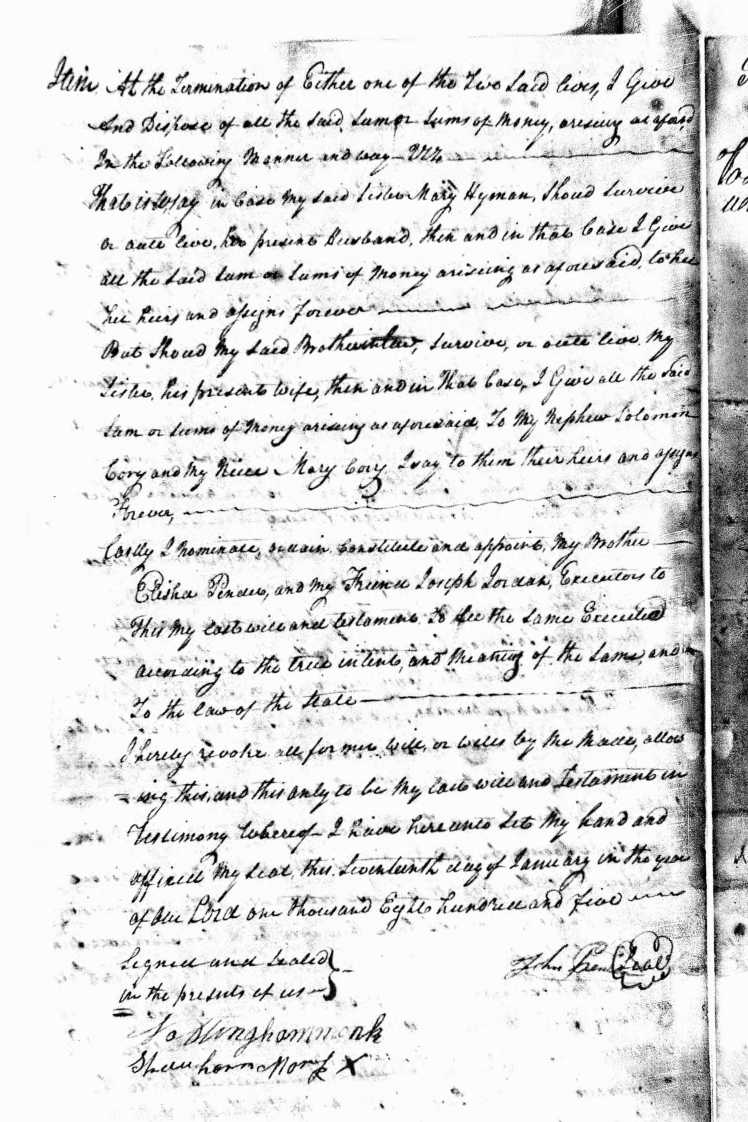 Item At the Termination of Either one of the Two Said lives, I Give
And Dispose of all the said, Sum or Sums of Money, ariseing as afores,d
In the Following Manner and way - Viz
That is to say in Case My said Sister Mary Hyman, Shoud Survive
or oute live, her present Husband, then and in that Case I Give
all the said Sum or Sums of Money ariseing as aforesaid, to her
her heirs and assigns forever
But Shoud My Said Brother in law, Survive, or oute live My
Sister, his present wife, then and in That Case, I Give all the Said
Sum or Sums of Money ariseing as aforesaid, To My Nephew Solomon
Cory and My Niece Mary Cory I say to them their heirs and assigns
Forever,
Lastly I nominate, ordain Constitute and appoint, My Brother
Elisha Pender, and My Friend Joseph Jordan, Executors to
This My last will and testament To See the Same Executed
according to the true intent, and Meaning of the Same, and
To the law of the State
I hereby revoke all former will, or wills by Me Made, allow
-ing this, and this only to be My last will and Testament in
Testimony Whereof I have hereunto Set My hand and
affixed My Seal this Seventeenth day of January in the year
of our Lord one thousand Eight hundred and five
Signed and Sealed
in the presents of us
John Seal
Nottingham Monk
X